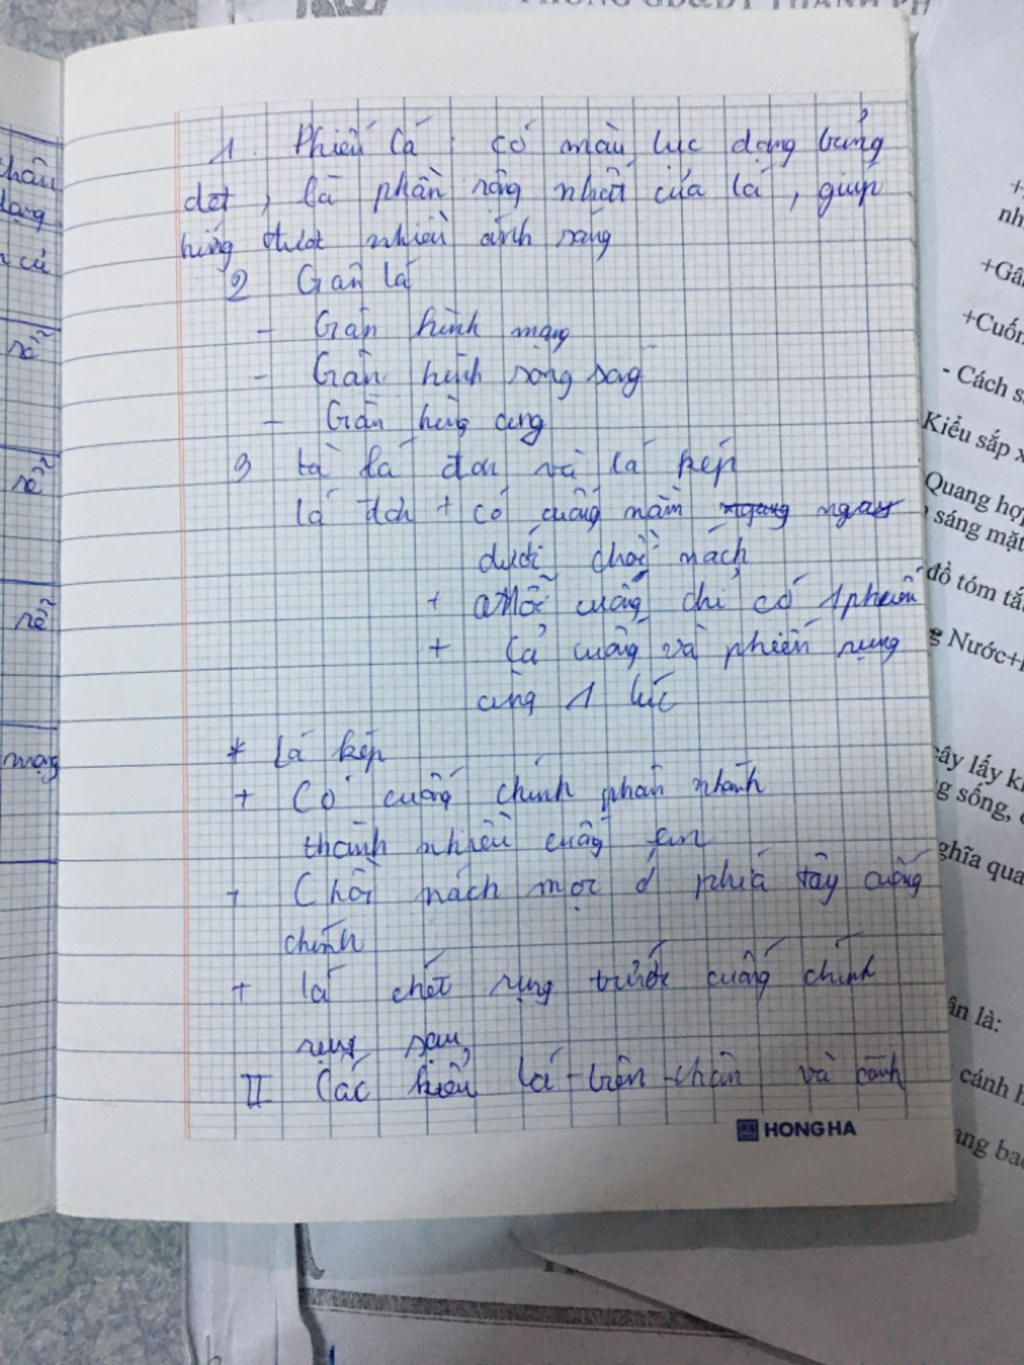 PHÒNG GD&ĐT THÀNH PH
1. Phiến lá : có màu lục dạng bảng
dẹt, là phần rộng nhất của lá, giúp
hứng được nhiều ánh sáng
2 Gân lá
- Gân hình mạng
- Gân hình song song
- Gân hình cung
3 lá đơn và lá kép
lá đơn + có cuống nằm ngay
dưới chồi nách
+ Mỗi cuống chỉ có 1 phiến
+ Cả cuống và phiến rụng
cùng 1 lúc
* Lá kép
+ Có cuống chính phân nhánh
thành nhiều cuống em
+ Chồi nách mọc ở phía cuống
chính
+ lá chét rụng trước cuống chính
rụng sau
II Các kiểu lá trên thân và cành
HONG HA
+Gâ
+Cuốn
- Cách s
Kiểu sắp x
Quang hợ
sáng mặt
đồ tóm tắ
g Nước+
cây lấy k
g sống,
ghĩa qua
ân là:
cánh
ang ba
thân
dạng
rễ
rễ
mạng